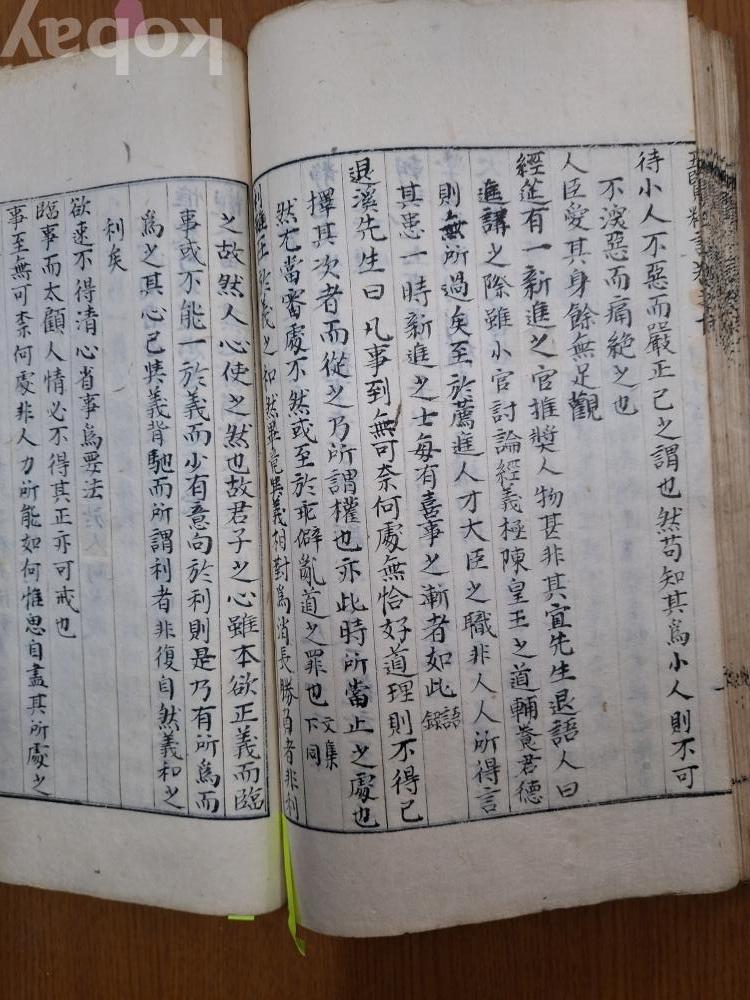 待小人不惡而嚴正己之謂也然苟知其爲小人則不可
不深惡而痛絶之也
人臣愛其身餘無足觀
經筵有一新進之官推奬人物甚非其宜先生退語人曰
進講之際雖小官討論經義極陳皇王之道輔養君德
則無所過矣至於薦進人才大臣之職非人人所得言
其患一時新進之士每有喜事之漸者如此 語錄
退溪先生曰凡事到無可奈何處無恰好道理則不得已
擇其次者而從之乃所謂權也亦此時所當止之處也
然尤當審處不然或至於乖僻亂道之罪也 文集下同
利雖在於義之和然畢竟與義相對爲消長勝負者非利
之故然人心使之然也故君子之心雖本欲正義而臨
事或不能一於義而少有意向於利則是乃有所爲而
爲之其心已與義背馳而所謂利者非復自然義和之
利矣
欲速不得清心省事爲要法
臨事而太顧人情必不得其正亦可戒也
事至無可柰何處非人力所能如何惟思自盡其所處之
kobay